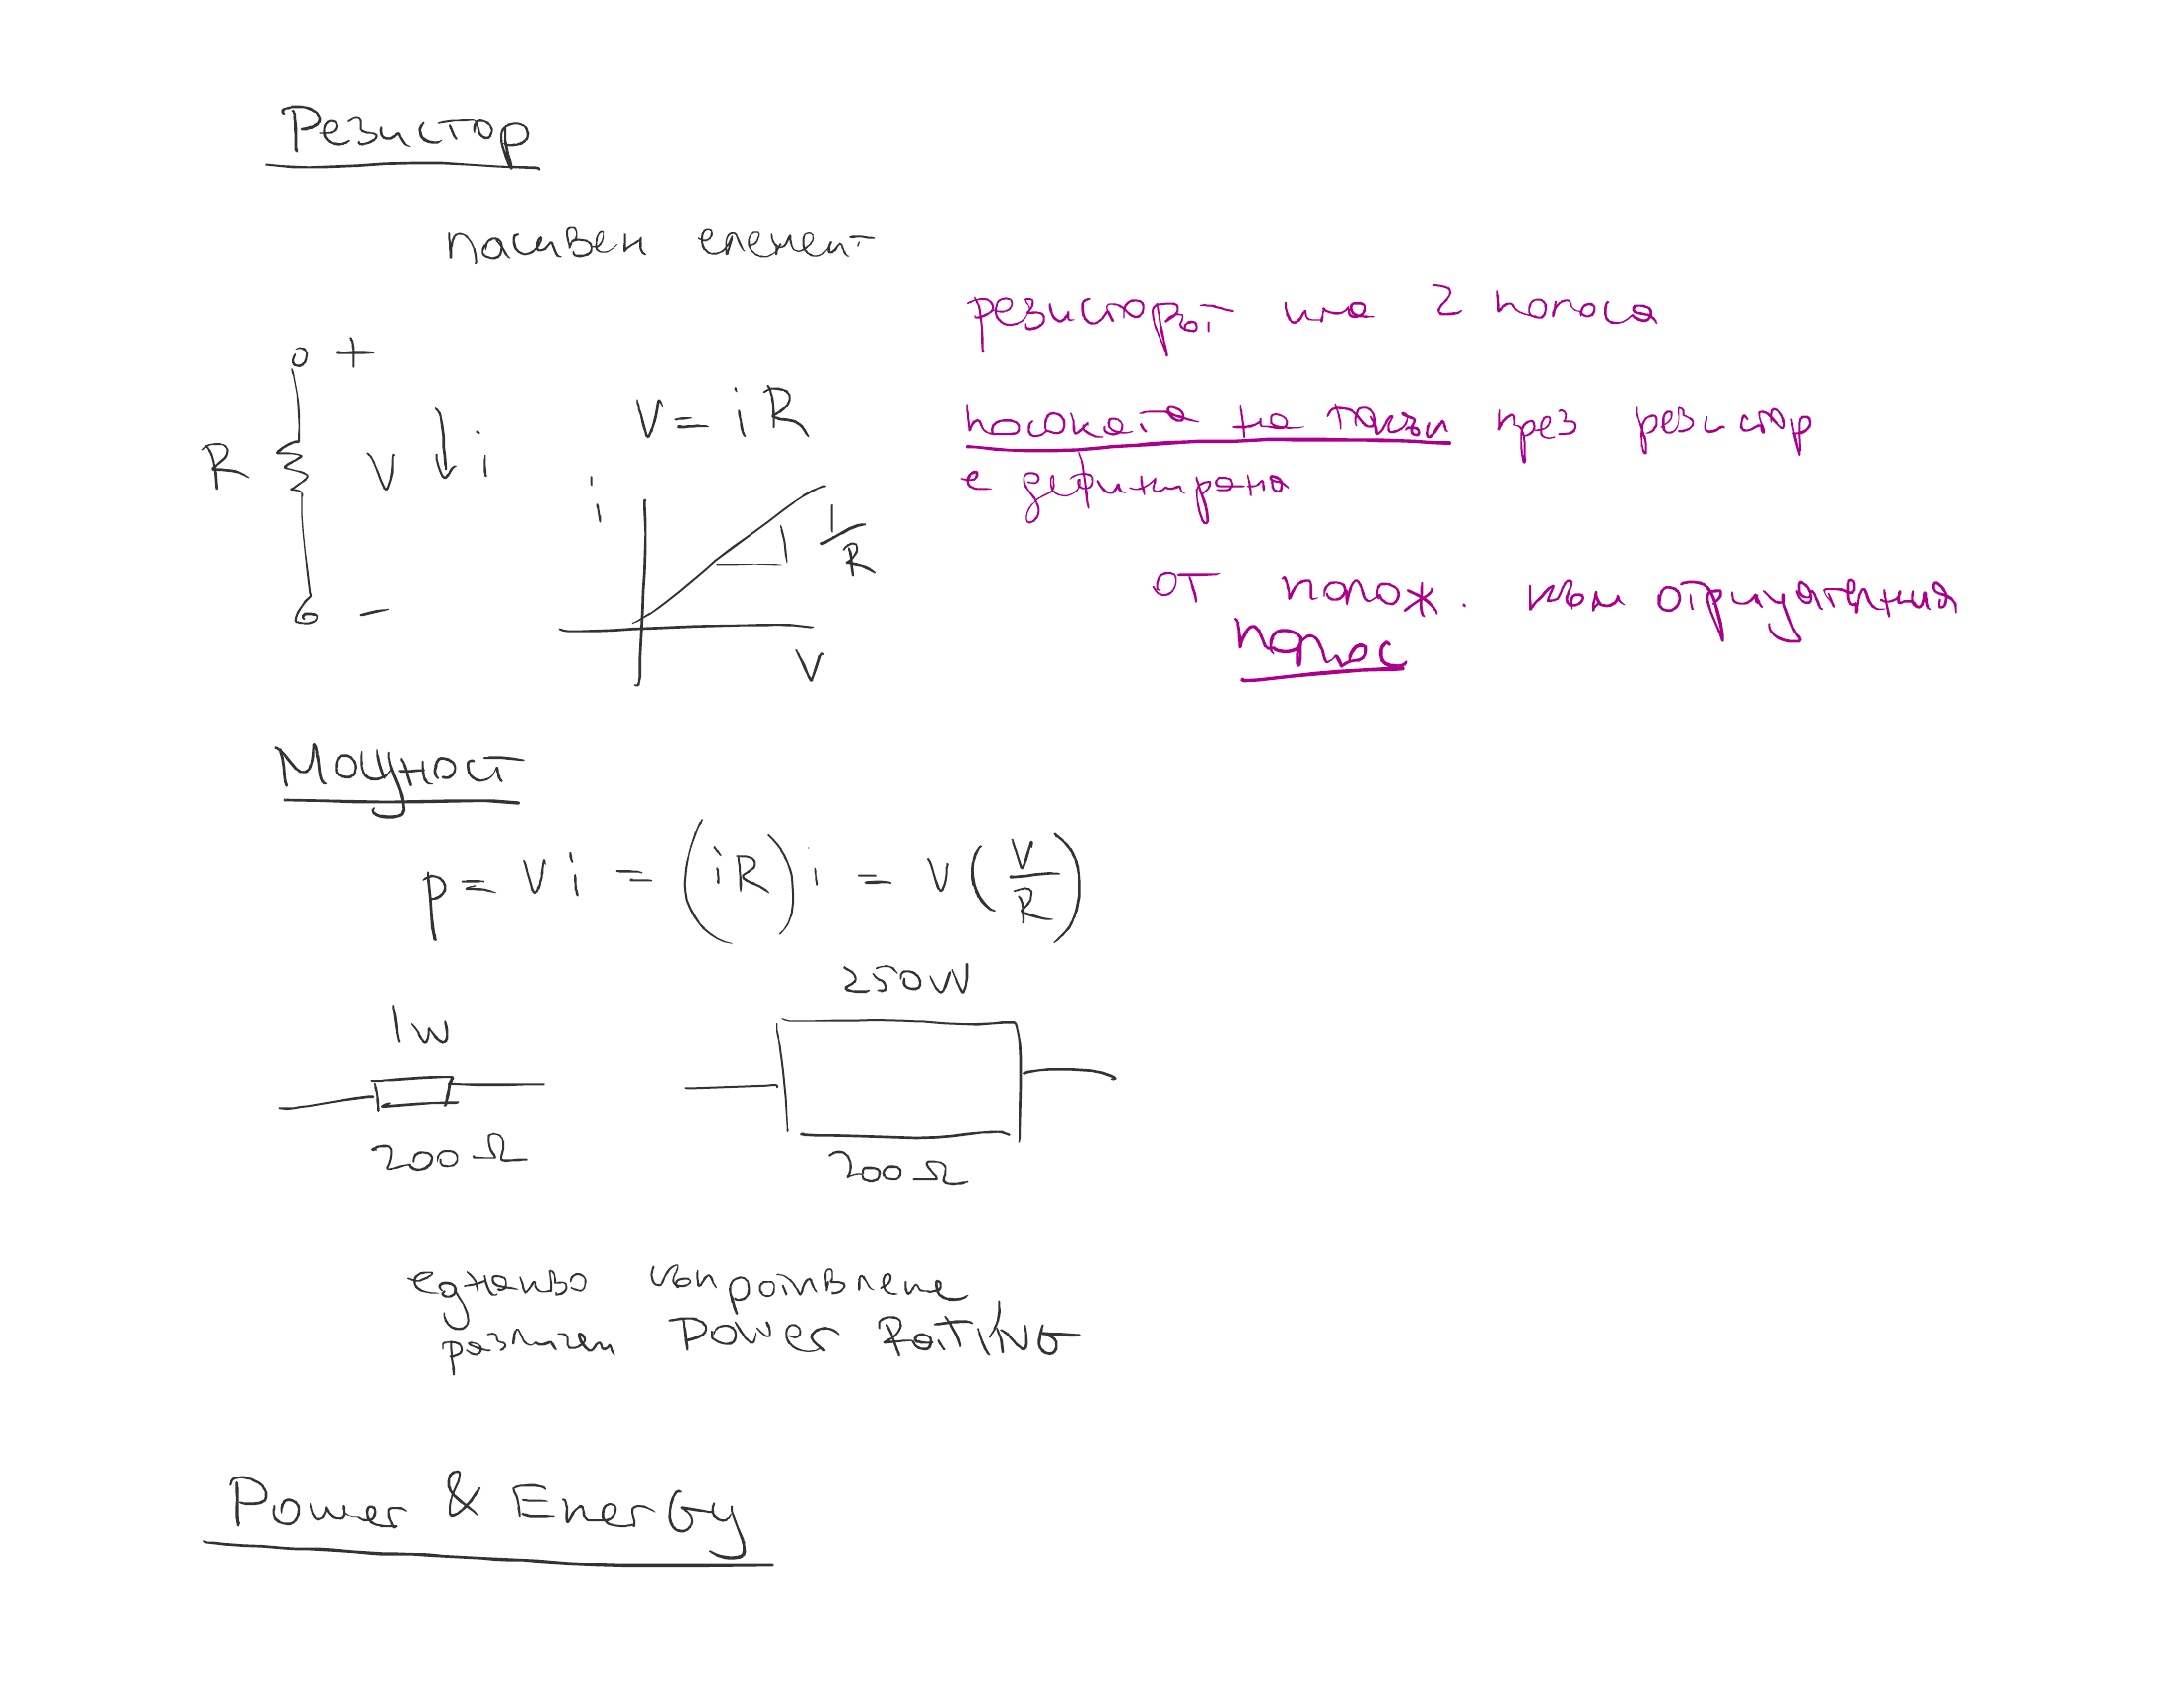 Резистор
пасивен елемент
резисторът има 2 полюса
+
V = iR
посоката на тока през резистор
R V i
е дефинирана
i
1/R
от полож. към отрицателния
полюс
-
V
Мощност
p = Vi = (iR)i = V(V/R)
250W
1W
200Ω
200Ω
еднакво съпротивление
различен POWER RATING
Power & Energy